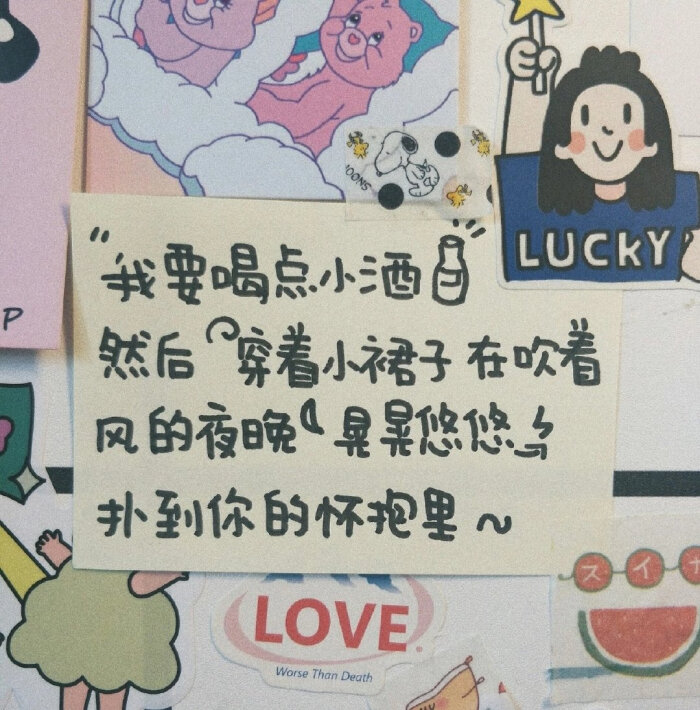 LUCKY
SNOO
P
"我要喝点小酒"
然后 穿着小裙子 在吹着
风的夜晚 晃晃悠悠
扑到你的怀抱里～
LOVE
Worse Than Death
スイ